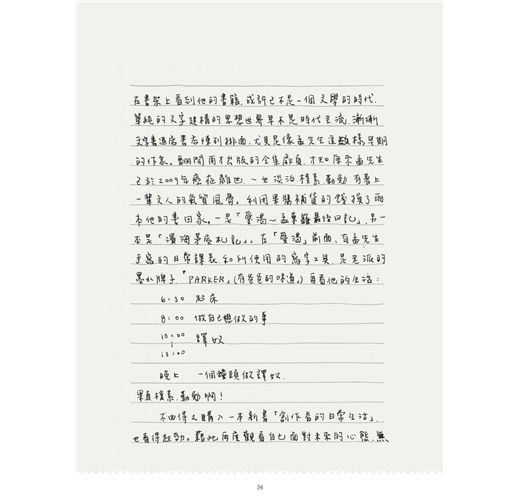 在書架上看到他的書籍,或許已不是一個文學的時代.
單純的文字建構的思想世界早不是時代主流,漸漸
書店陳列排面,尤其是像孟先生這樣早期
的作家。翻閱再才出版的全集扉頁,才知原來孟先生
已於2009年癌症離世.一生淡泊樸素勤勉,有著上
一輩文人的氣質風骨。利用果醬補貨的錢換了兩
本他的書回家。一是「憂渴~孟東籬最後日記」,另一
本是「濱海茅屋札記」,在「憂渴」前面,有孟先生
手寫的日常課表和所使用的寫字工具,是老派的
墨水牌子"PARKER"(有爸爸的味道。)再看他的生活:
6:30 起床
8:00 做自己想做的事
10:00
|
13:00 譯奴
晚上 一個鐘頭做譯奴.
果真樸素.勤勉啊!
不由得又購入一本新書「創作者的日常生活」,
也看得起勁。藉此再度觀看自己面對未來的心態,無
34